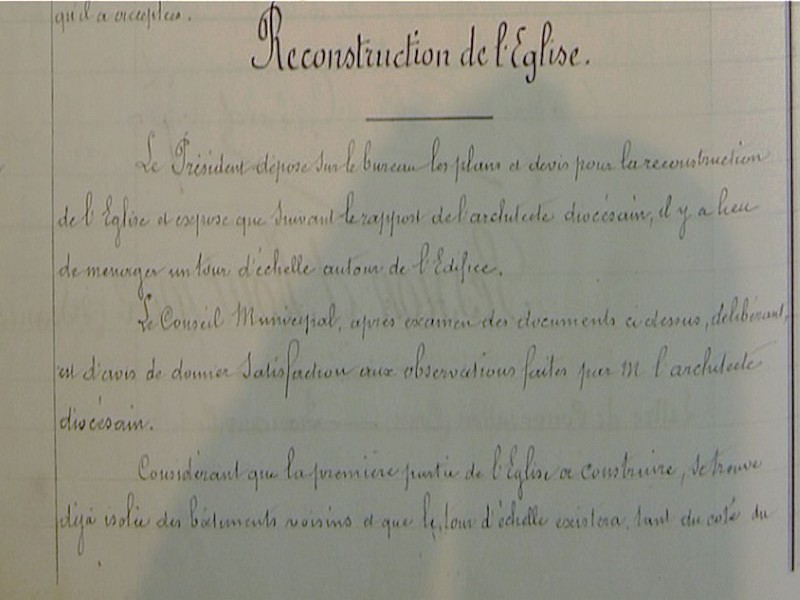 qu'il a acceptées.
Reconstruction de l'Eglise.
Le Président dépose sur le bureau les plans et devis pour la reconstruction
de l'Eglise et expose que suivant le rapport de l'architecte diocésain, il y a lieu
de menager un tour d'échelle autour de l'Edifice.
Le Conseil Municipal, après examen des documents ci dessus, délibérant,
est d'avis de donner satisfaction aux observations faites par M l'architecte
diocésain.
Considérant que la première partie de l'Eglise a construire, se trouve
déjà isolée des bâtiments voisins et que le tour d'échelle existera, tant du coté du